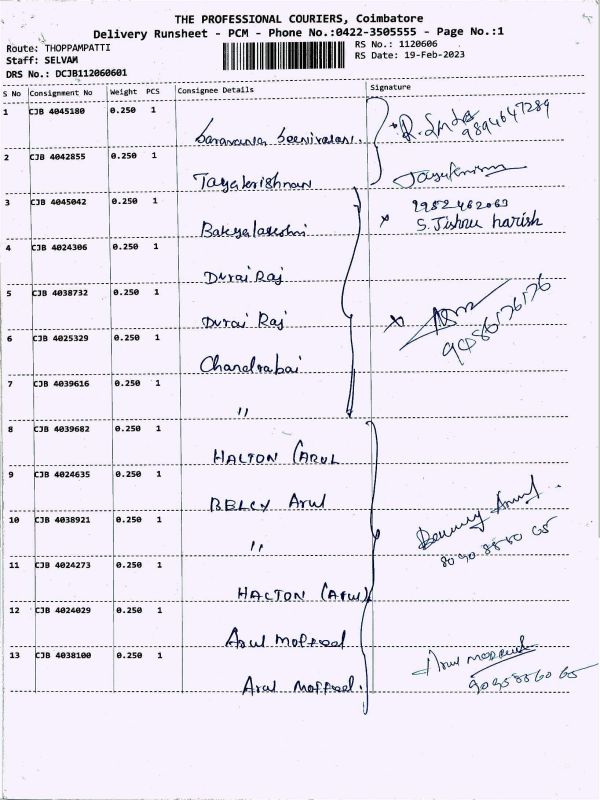 THE PROFESSIONAL COURIERS, Coimbatore
Delivery Runsheet - PCM - Phone No.:0422-3505555 - Page No.:1
Route: THOPPAMPATTI
RS No.: 1120606
Staff: SELVAM
RS Date: 19-Feb-2023
DRS No.: DCJB112060601
S No Consignment No Weight PCS Consignee Details Signature
1 CJB 4045180 0.250 1
9894647289
2 CJB 4042855 0.250 1
Jayakrishnan
3 CJB 4045042 0.250 1
9952462063
Bakyalakshmi
S. Jishnu harish
4 CJB 4024306 0.250 1
Durai Raj
5 CJB 4038732 0.250 1
Durai Raj
6 CJB 4025329 0.250 1
Chandrabai
7 CJB 4039616 0.250 1
"
8 CJB 4039682 0.250 1
HALTON (ARUL
9 CJB 4024635 0.250 1
BELCY Arul
10 CJB 4038921 0.250 1
"
11 CJB 4024273 0.250 1
HALTON (Arul)
12 CJB 4024029 0.250 1
Arul
13 CJB 4038100 0.250 1
Arul